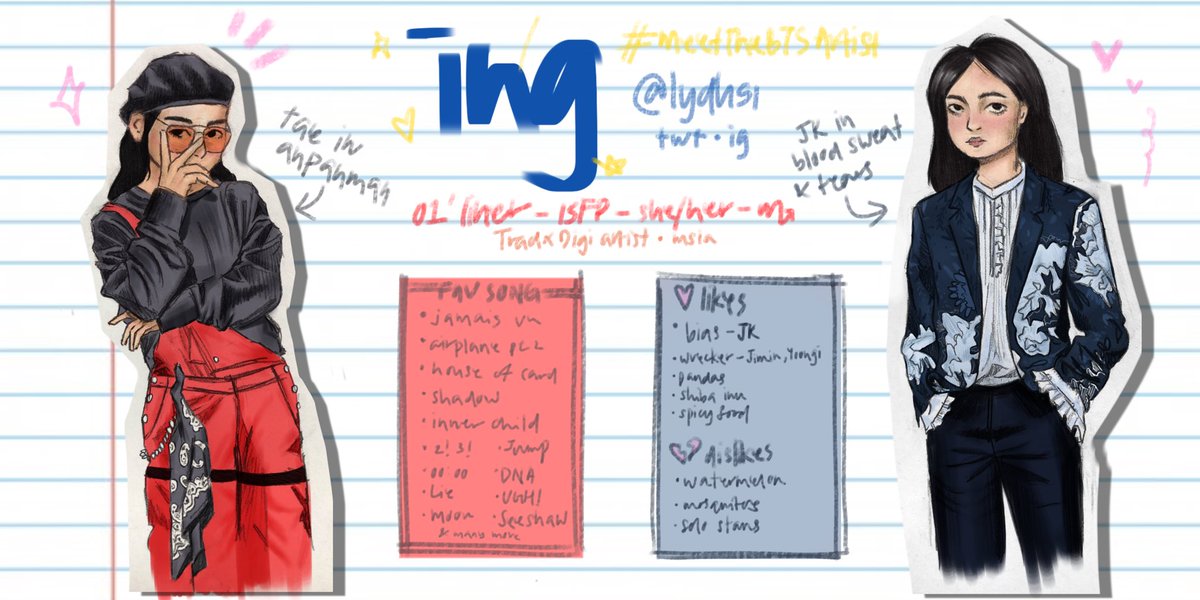 ing
#MeetTheBTSArtist
@lydhsi
twt • ig
tae in
anpanman
JK in
blood sweat
& tears
01' liner - ISFP - she/her -
Trad x Digi artist • msia
FAV SONG
• jamais vu
• airplane pt 2
• house of card
• shadow
• inner child
• 2! 3! • Jump
• 00:00 • DNA
• Lie • UGH!
• Moon • Seesaw
& many more
likes
• bias - JK
• wrecker - Jimin, Yoongi
• pandas
• shiba inu
• spicy food
dislikes
• watermelon
• mosquitoes
• solo stans